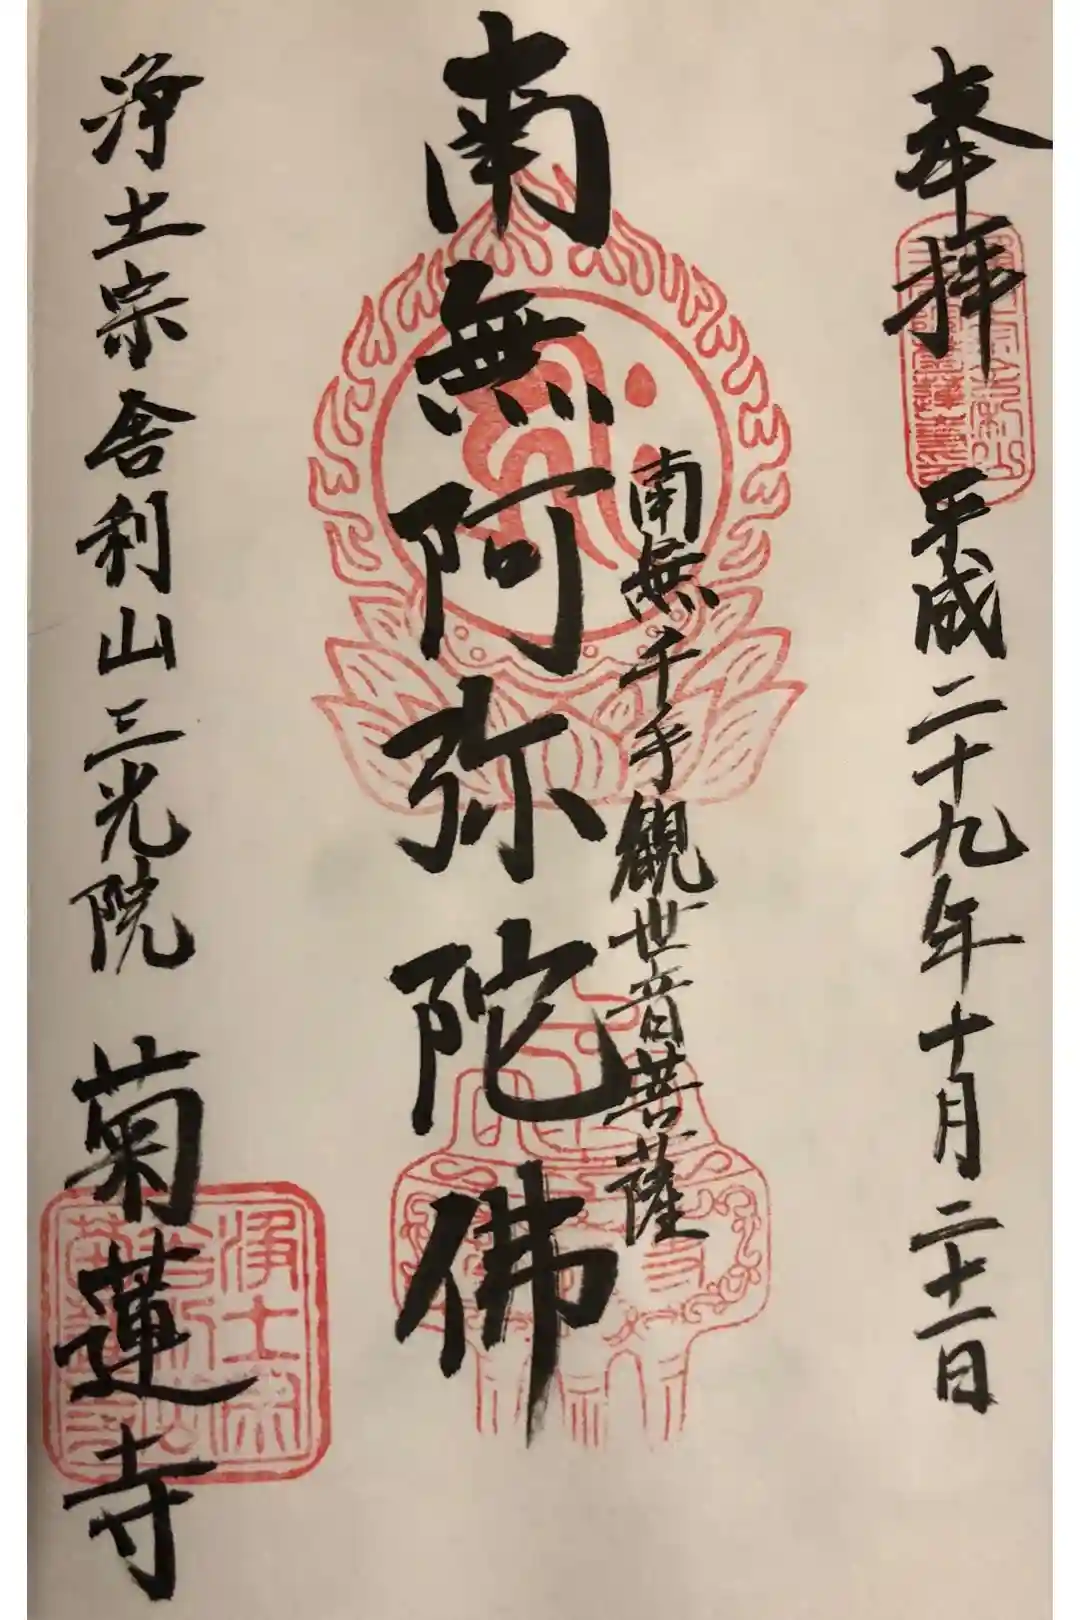 奉拝
平成二十九年十月二十一日
南無千手觀世音菩薩
南無阿弥陀佛
浄土宗舎利山三光院
菊蓮寺